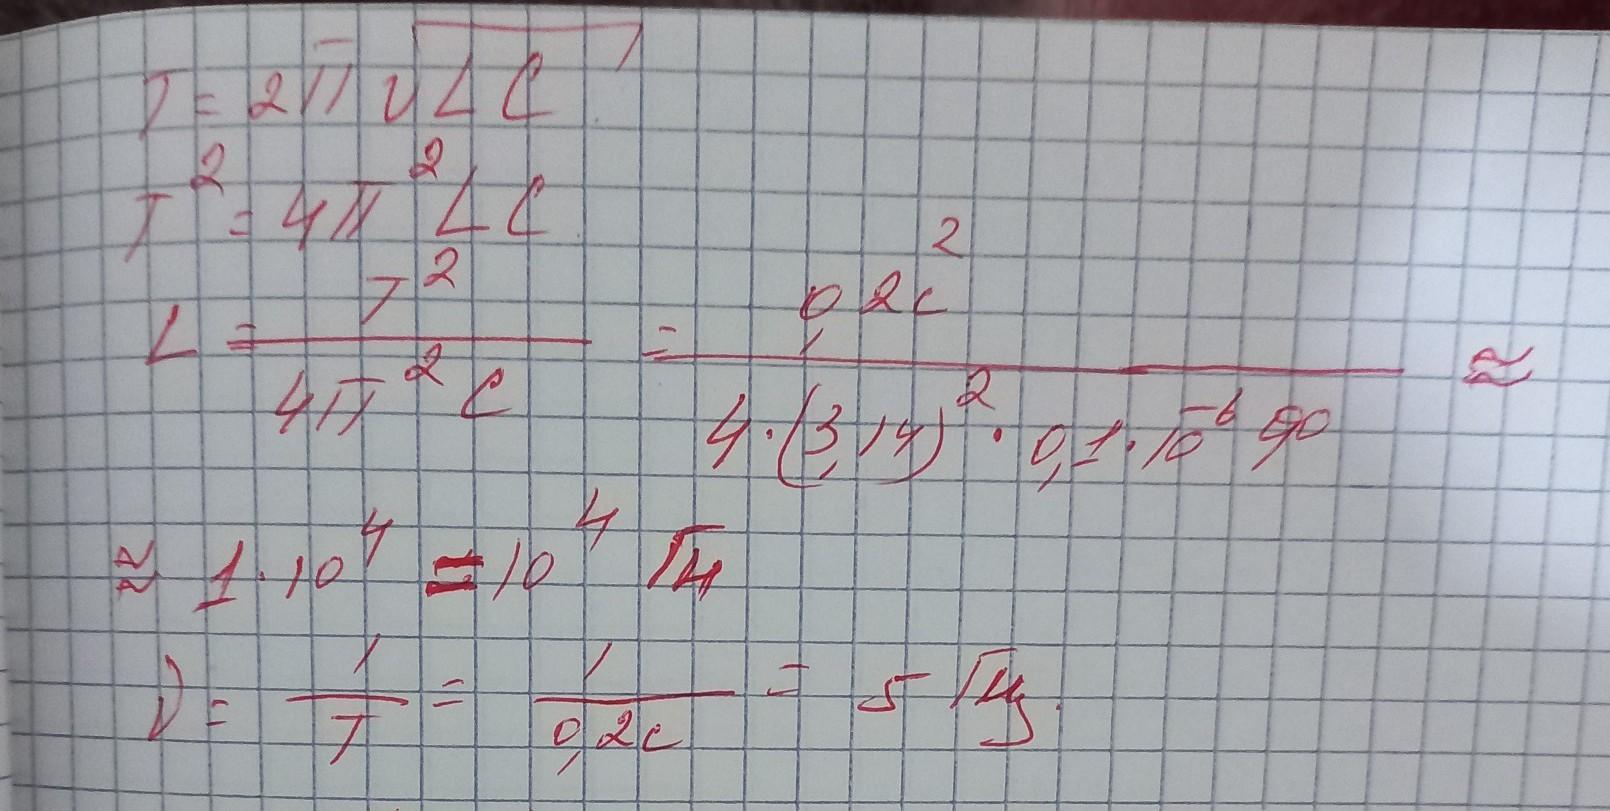 T = 2π√LC
T² = 4π²LC
L = T² / 4π²C = 0,2c² / 4·(3,14)²·0,1·10⁻⁶ ≈
≈ 1·10⁴ = 10⁴ Гн
ν = 1/T = 1/0,2c = 5 Гц.